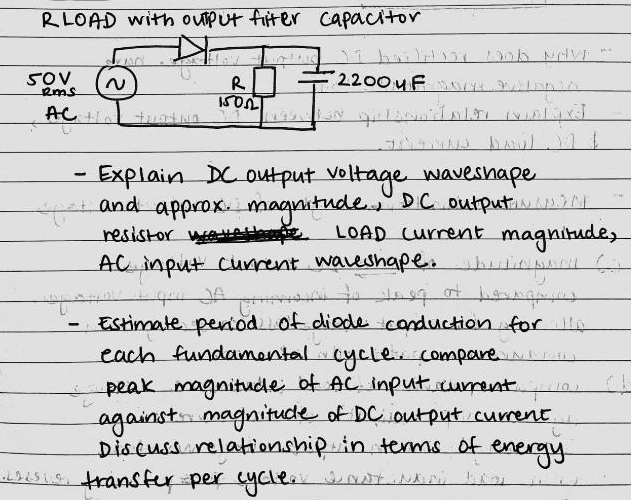 R LOAD with output filter capacitor
50V
RMS
AC
R
150Ω
2200uF
- Explain DC output voltage waveshape
and approx. magnitude, DC output
resistor LOAD current magnitude,
AC input current waveshape.
- Estimate period of diode conduction for
each fundamental cycle. compare
peak magnitude of AC input current
against magnitude of DC output current
Discuss relationship in terms of energy
transfer per cycle.